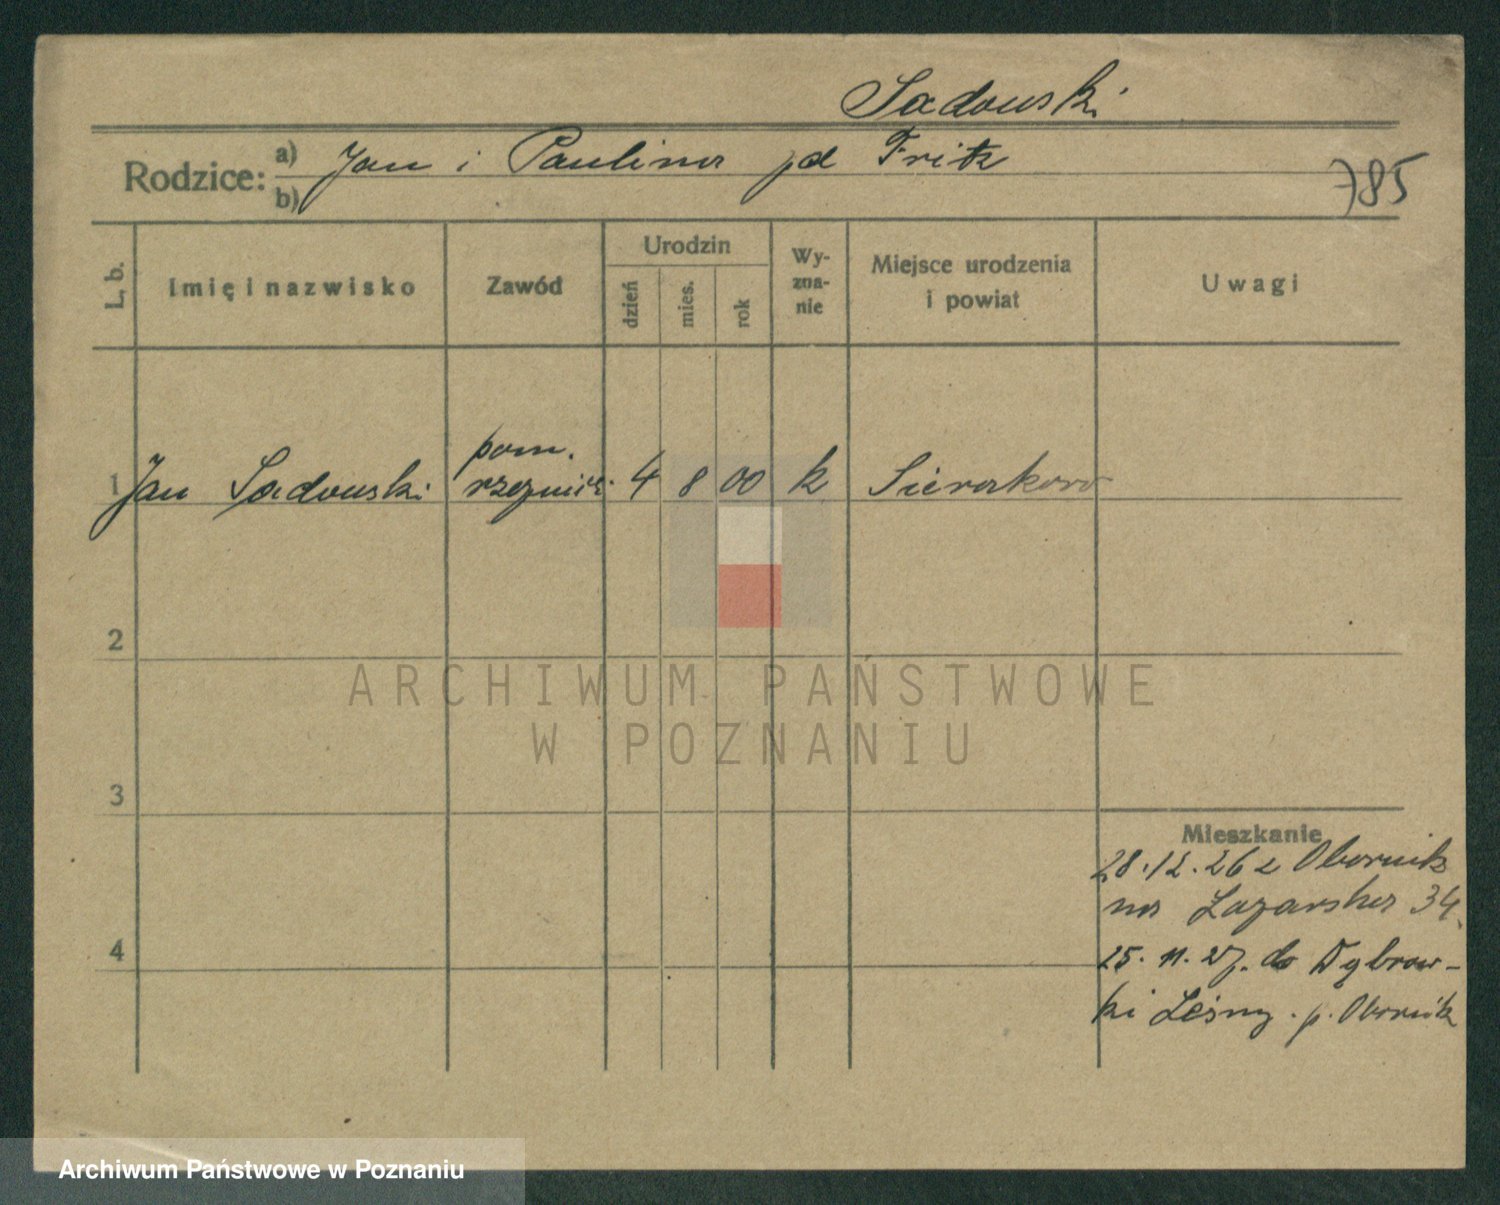 Sadowski
Rodzice: a) Jan i Paulina pd Fritz
b)
785
L. b.
Imię i nazwisko
Zawód
Urodzin
dzień
mies.
rok
Wy-
zna-
nie
Miejsce urodzenia
i powiat
Uwagi
pom.
1 Jan Sadowski rzeznick. 4 8 00 k Sierakowo
2
ARCHIWUM PAŃSTWOWE
W POZNANIU
3
Mieszkanie
28.12.26 z Obornik
na Lazarska 34.
4
25.11.27. do Dąbrow-
ki Leśny. p. Obornik
Archiwum Państwowe w Poznaniu